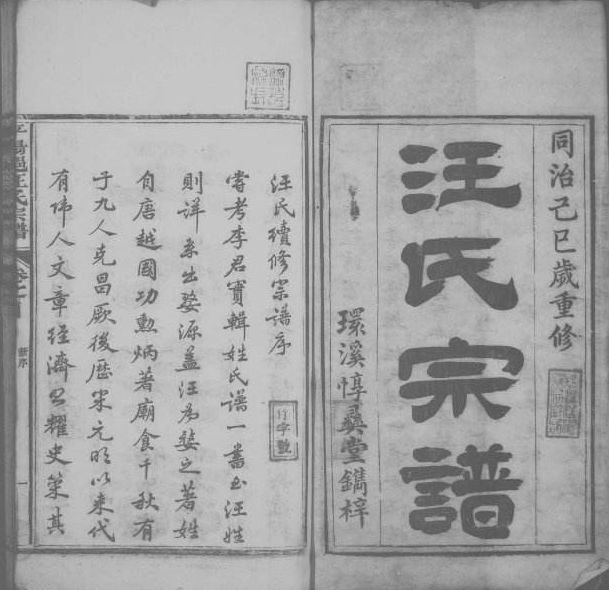 同治己巳歲重修
汪氏宗譜
環溪惇彝堂鐫梓
汪氏續修宗譜序
行字號
嘗考李君實輯姓氏譜一書至汪姓
則詳系出婺源蓋汪為婺之著姓
自唐越國功勲炳著廟食千秋有
于九人克昌厥後歷宋元明以來代
有偉人文章經濟照耀史策其
汪氏宗譜
卷之首
新序
一